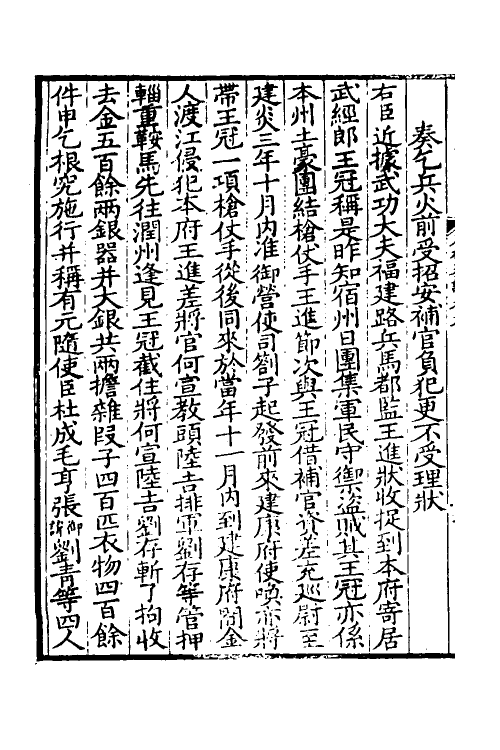 奏乞兵火前受招安補官負犯更不受理狀
右臣近據武功大夫福建路兵馬都監王進狀收捉到本府寄居
武經郎王冠稱是昨知宿州日團集軍民守禦盜賊其王冠亦係
本州土豪團結槍仗手王進節次與王冠借補官資差充巡尉至
建炎三年十月內准御營使司劄子起發前來建康府使喚亦將
帶王冠一項槍仗手從後同來於當年十一月內到建康府間金
人渡江侵犯本府王進差將官何宣教頭陸吉排軍劉存等管押
輜重鞍馬先往潤州逢見王冠截住將何宣陸吉劉存斬了拘收
去金五百餘兩銀器并大銀共兩擔雜段子四百匹衣物四百餘
件申乞根究施行并稱有元隨使臣杜成毛亨張 劉青等四人